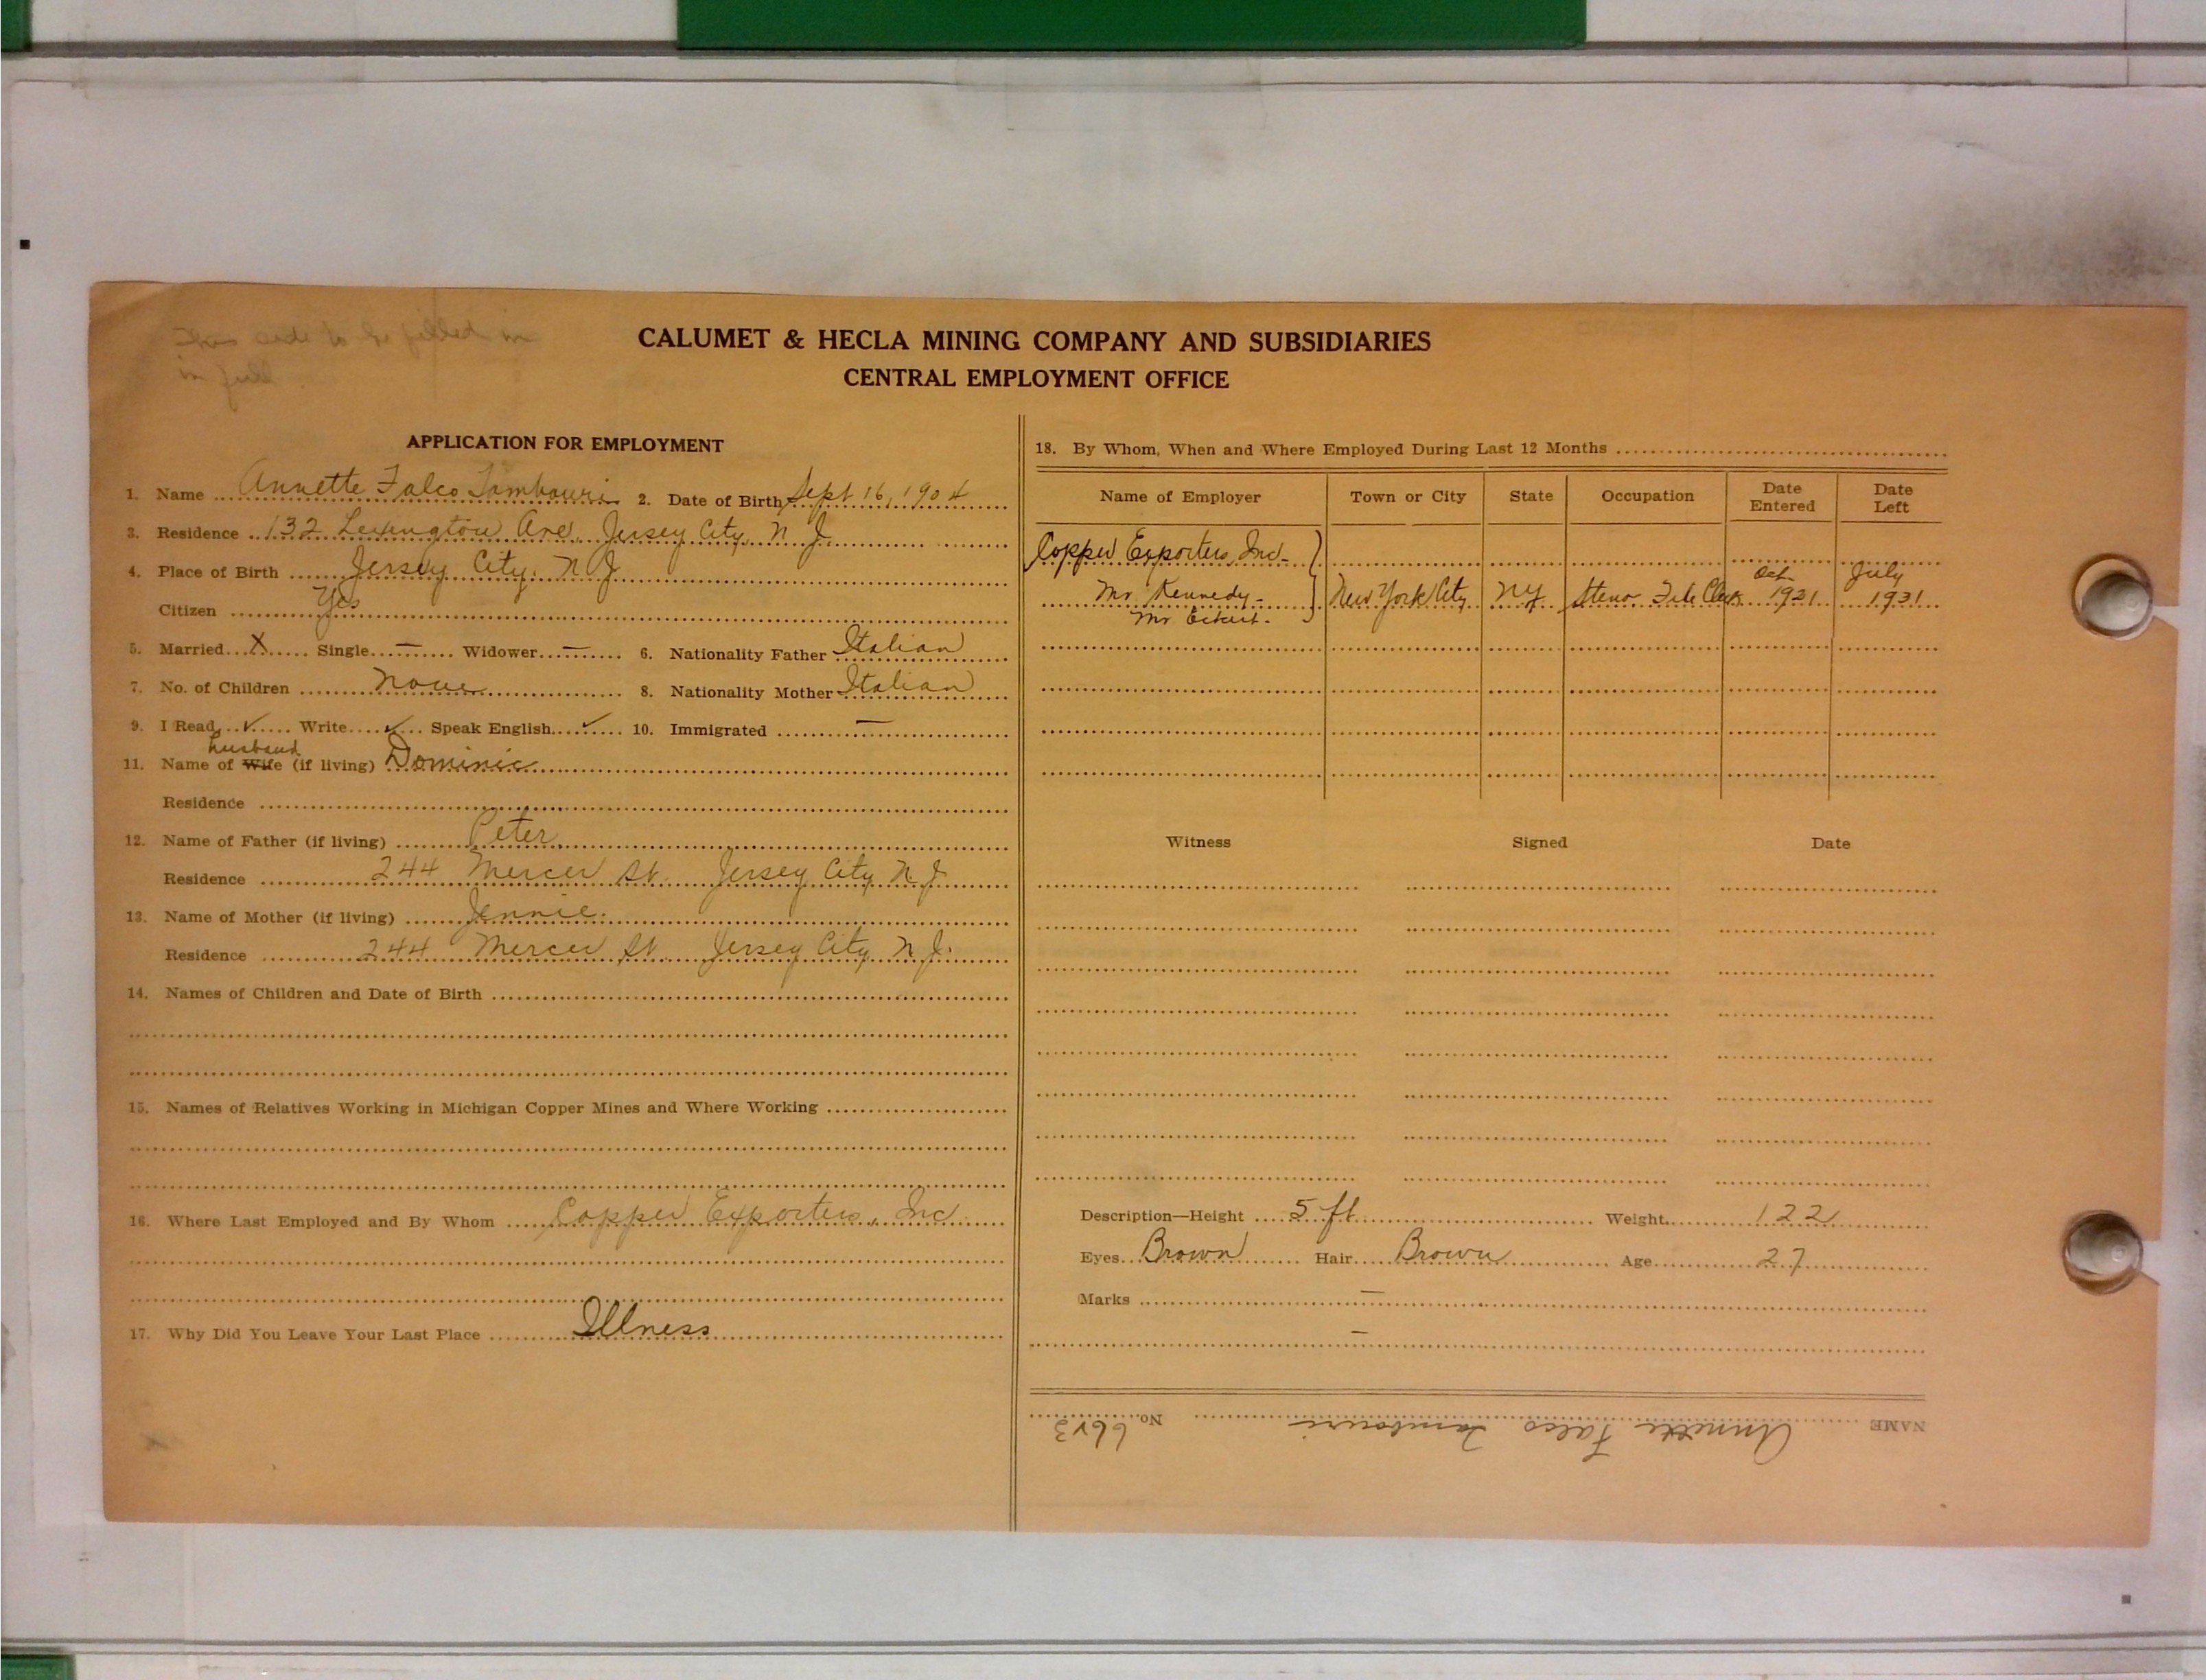 This side to be filled in
in full.
CALUMET & HECLA MINING COMPANY AND SUBSIDIARIES
CENTRAL EMPLOYMENT OFFICE
APPLICATION FOR EMPLOYMENT
1. Name Annette Falco Tambouri 2. Date of Birth Sept 16, 1904
3. Residence 132 Lexington Ave. Jersey City, N J.
4. Place of Birth Jersey City. N J
Citizen Yes
5. Married X Single — Widower — 6. Nationality Father Italian
7. No. of Children None 8. Nationality Mother Italian
9. I Read ✓ Write ✓ Speak English ✓ 10. Immigrated —
husband
11. Name of Wife (if living) Dominic
Residence
12. Name of Father (if living) Peter
Residence 244 Mercer St. Jersey City N. J.
13. Name of Mother (if living) Jennie.
Residence 244 Mercer St. Jersey City N. J.
14. Names of Children and Date of Birth
15. Names of Relatives Working in Michigan Copper Mines and Where Working
16. Where Last Employed and By Whom Copper Exporters, Inc.
17. Why Did You Leave Your Last Place Illness
18. By Whom, When and Where Employed During Last 12 Months
Name of Employer Town or City State Occupation Date Entered Date Left
Copper Exporters, Inc-
Mr. Kennedy- New York City NY. Steno. File Clerk Oct- 1921 July 1931
Mr
Witness Signed Date
Description—Height 5 ft Weight 122
Eyes Brown Hair Brown Age 27
Marks —
—
NAME Annette Falco Tambouri No.